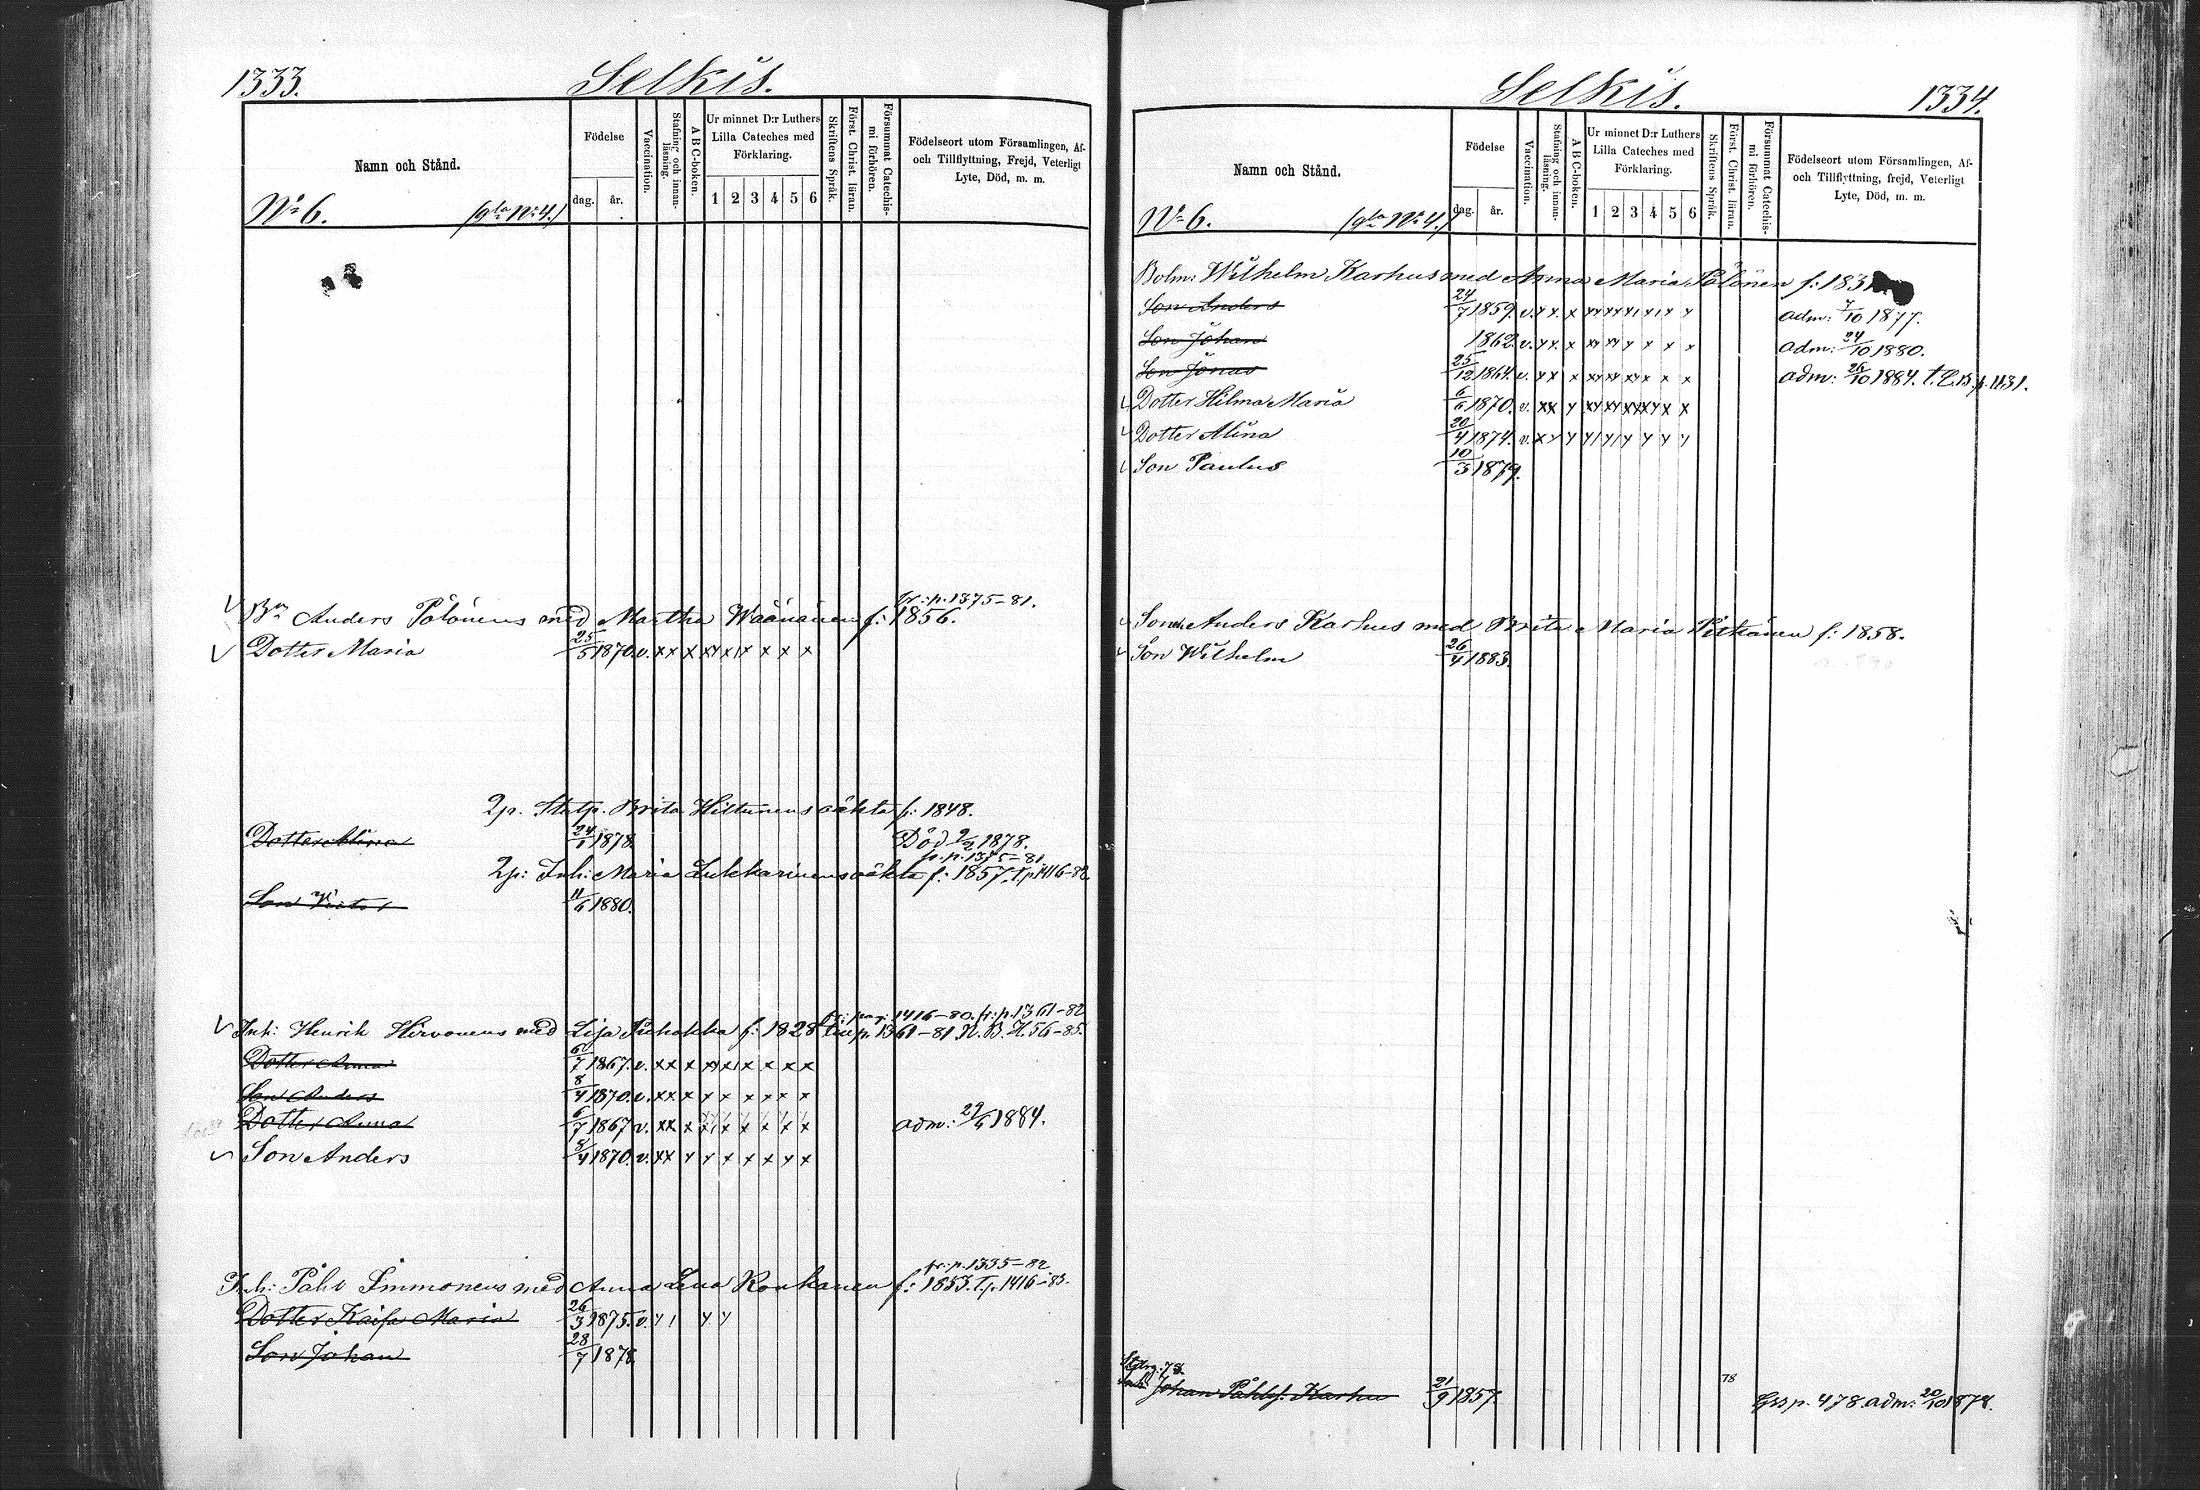 1333.
Selkis.
Namn och Stånd.
Födelse
dag.
år.
Vaccination.
Stafning och innanläsning.
A B C-boken.
Ur minnet D:r Luthers
Lilla Cateches med
Förklaring.
1 2 3 4 5 6
Skriftens Språk.
Först. Christ. läran.
Försummat Catechismi förhören.
Födelseort utom Församlingen, Af-
och Tillflyttning, Frejd, Veterligt
Lyte, Död, m. m.
No 6. (gla No 4.)
fr: p. 1375-81.
Bn Anders Pölönens med Martha Wäänänen f: 1856.
Dotter Maria 25/5 1870. v. xx x xx x x x x x
2p. Brita Hiltunens oäkta f: 1848.
Dotter Alina 24/1 1878. Död 2/2 1878.
fr. p. 1375-81
2p: Inh: Maria Lukkarinens oäkta f: 1857. T.p 1416-82.
Son Victor 11/6 1880.
1416-80. fr: p. 1361-82
Inh: Henrik Hirvonens med Lisa f: 1828 p. 1361-81. N. B. H. 56-85.
Dotter Anna 6/7 1867. v. xx x xx x x x x x
Son Anders 8/4 1870. v. xx x x x x x x x
Dotter Anna 6/7 1867 v. xx x x x x x x x adm: 29/6 1884.
Son Anders 8/4 1870. v. xx x x x x x x x
fr: p. 1335-82
Inh: Påhl Immonens med Anna Lena Ronkanen f: 1853. T.p. 1416-83.
Dotter Kaisa Maria 26/3 1875. v.
Son Johan 28/7 1878
Selkis.
1334.
Namn och Stånd.
Födelse
dag.
år.
Vaccination.
Stafning och innanläsning.
A B C-boken.
Ur minnet D:r Luthers
Lilla Cateches med
Förklaring.
1 2 3 4 5 6
Skriftens Språk.
Först. Christ. läran.
Försummat Catechismi förhören.
Födelseort utom Församlingen, Af-
och Tillflyttning, frejd, Veterligt
Lyte, Död, m. m.
No 6. (gla No 4.)
Bolm: Wilhelm Karhus med Anna Maria Pölönen f: 183
Son Anders 24/7 1859. v. x x. x xx xx x x x x adm: 7/10 1877.
Son Johan 1862. v. x x. x xx xx x x x x adm: 24/10 1880.
Son Jonas 25/12 1864. v. x x x xx xx xx x x x adm: 26/10 1884. T. L. B. p. 1131.
Dotter Hilma Maria 6/6 1870. v. xx x xx xx xx xx x x
Dotter Alina 20/4 1874. v. x x x x x x x x x
Son Paulus 10/3 1879.
Son Anders Karhus med Brita Maria Pitkänen f: 1858.
Son Wilhelm 26/4 1883.
78
Johan Påhls: Karhu 21/9 1857. p. 478. adm: 20/10 1878.